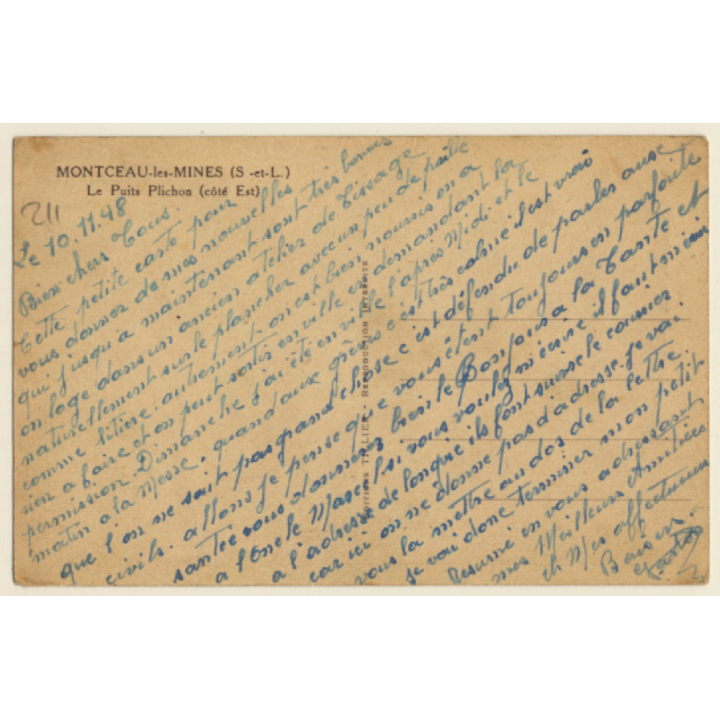 MONTCEAU-les-MINES (S.-et-L.)
Le Puits Plichon (côté Est)
211
Le 10.11.48
Bien chers Tous.
Cette petite carte pour
vous donner de mes nouvelles
qui jusqu'a maintenant sont très bonnes
on loge dans un ancien atelier de tissage
naturellement sur le plancher avec un peu de paille
comme litière. autrement on est bien nourris on a
rien a faire et on peut sortir en ville en demandant la
permission. Dimanche j'ai été en ville l'après Midi et le
matin a la Messe. quand aux grèves c'est très calme il est vrai
que l'on ne sait pas grand chose c'est défendu de parler aux
civils. allons je pense que vous êtent toujours en parfaite
santée vous donnerez bien le Bonjour a la Tante et
a l'Oncle Marcel si vous voulez m'écrire il faut
a l'adresse de Longue ils font suivre le courrier
car ici on ne donne pas d'adresse. Je vai
vous la mettre au dos de la lettre.
Je vai donc terminer mon petit
Resumé en vous adressant
mes Meilleurs Amitiées
et Mes affectueux
Baisers
EDITIONS TILLIER - REPRODUCTION INTERDITE